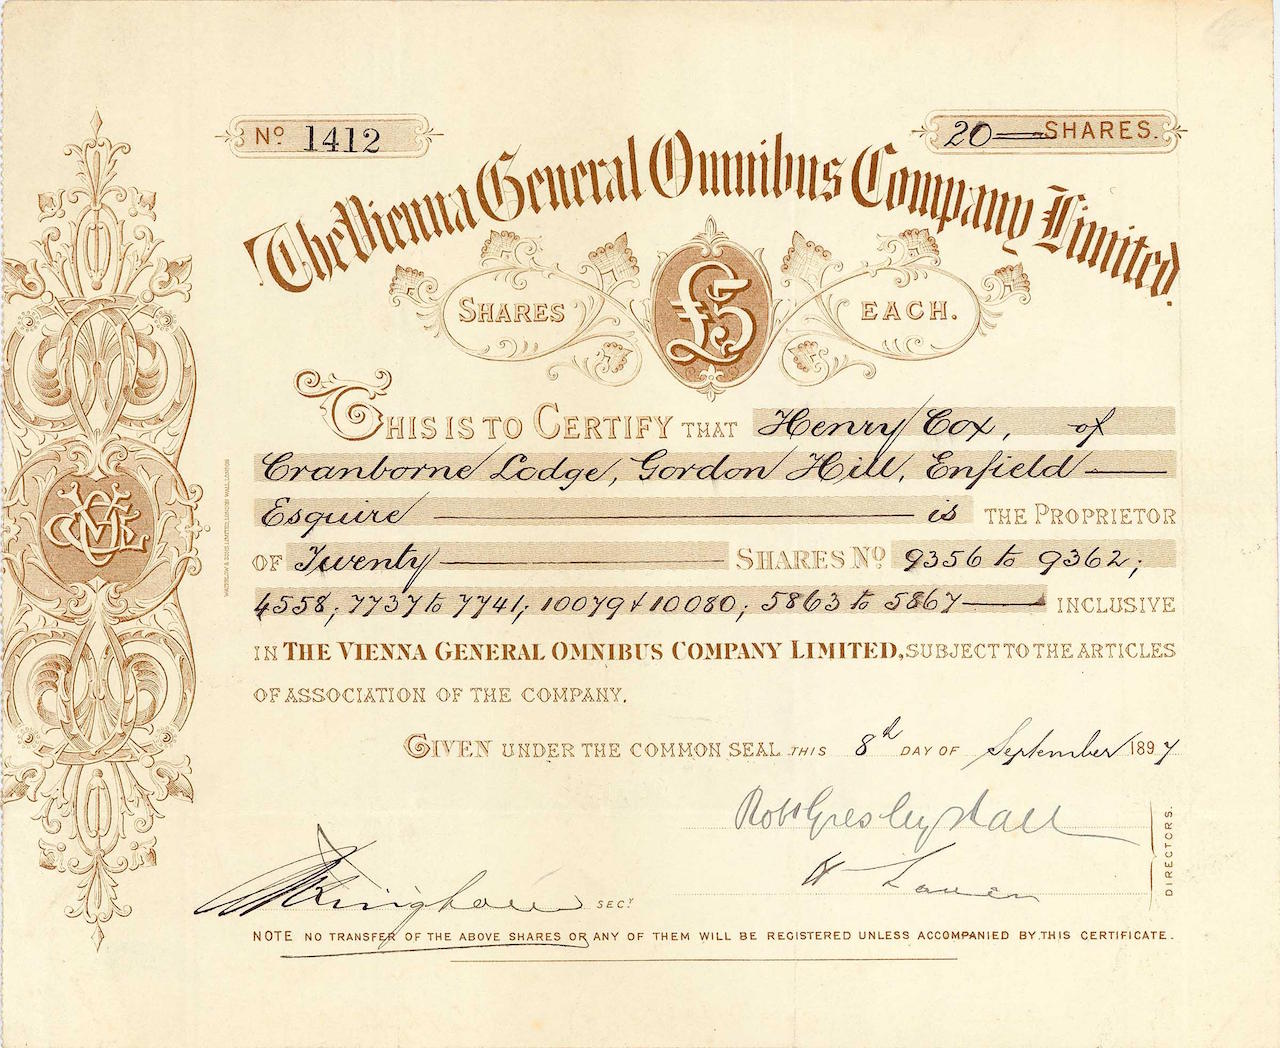 No 1412
20 — SHARES.
The Vienna General Omnibus Company Limited.
SHARES £5 EACH.
THIS IS TO CERTIFY THAT Henry Cox, of
Cranborne Lodge, Gordon Hill, Enfield —
Esquire — is THE PROPRIETOR
OF Twenty — SHARES No 9356 to 9362;
4558; 7737 to 7741; 10079 & 10080; 5863 to 5867 — INCLUSIVE
IN THE VIENNA GENERAL OMNIBUS COMPANY LIMITED, SUBJECT TO THE ARTICLES
OF ASSOCIATION OF THE COMPANY.
GIVEN UNDER THE COMMON SEAL THIS 8th DAY OF September 1897
Robt Gresley Hall
DIRECTORS.
SECY
NOTE NO TRANSFER OF THE ABOVE SHARES OR ANY OF THEM WILL BE REGISTERED UNLESS ACCOMPANIED BY THIS CERTIFICATE.
WATERLOW & SONS LIMITED, LONDON WALL, LONDON